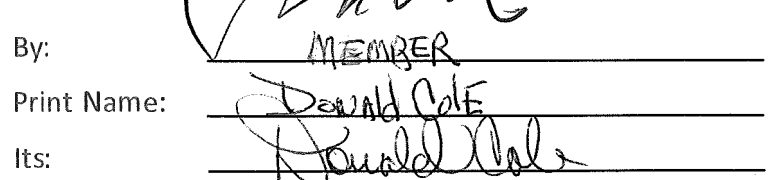 By: MEMBER
Print Name: Donald Cole
Its: Donald Cole